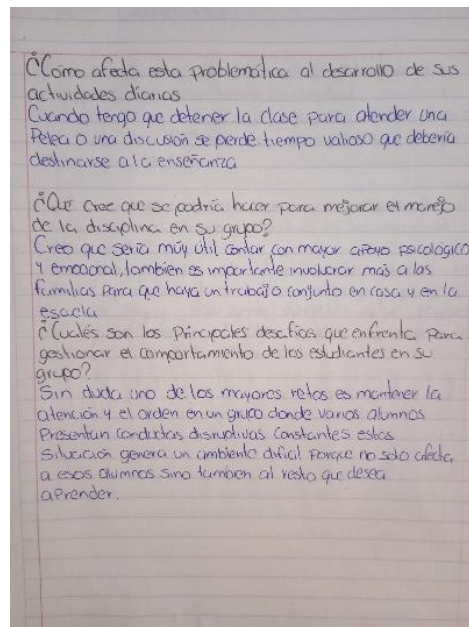 ¿Como afecta esta problemática al desarrollo de sus
actividades diarias
Cuando tengo que detener la clase para atender una
Pelea o una discusión se perde tiempo valioso que debería
destinarse a la enseñanza
¿Qué cree que se podría hacer para mejorar el manejo
de la disciplina en su grupo?
Creo que sería múy útil contar con mayor apoyo psicológico
y emocional, tambien es importante involucrar mas a las
familias para que haya un trabajo conjunto en casa y en la
escuela
¿Cuáles son los Principales desafios que enfrenta Para
gestionar el comportamiento de los estudiantes en su
grupo?
Sin duda uno de los mayores retos es mantener la
atención y el orden en un grupo donde varios alumnos
Presentan conductas disruptivas constantes estas
Situación genera un ambiente dificil Porque no solo afecta
a esos alumnos sino tambien al resto que desea
aprender.